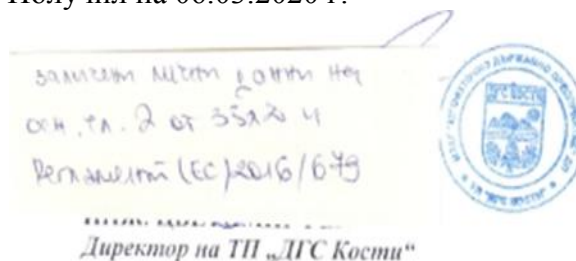 Получил на 06.03.2020 г.
заличени лични данни на
осн. чл. 2 от ЗЗЛД и
Регламент (ЕС) 2016/679
ДГС КОСТИ
Директор на ТП „ДГС Кости“